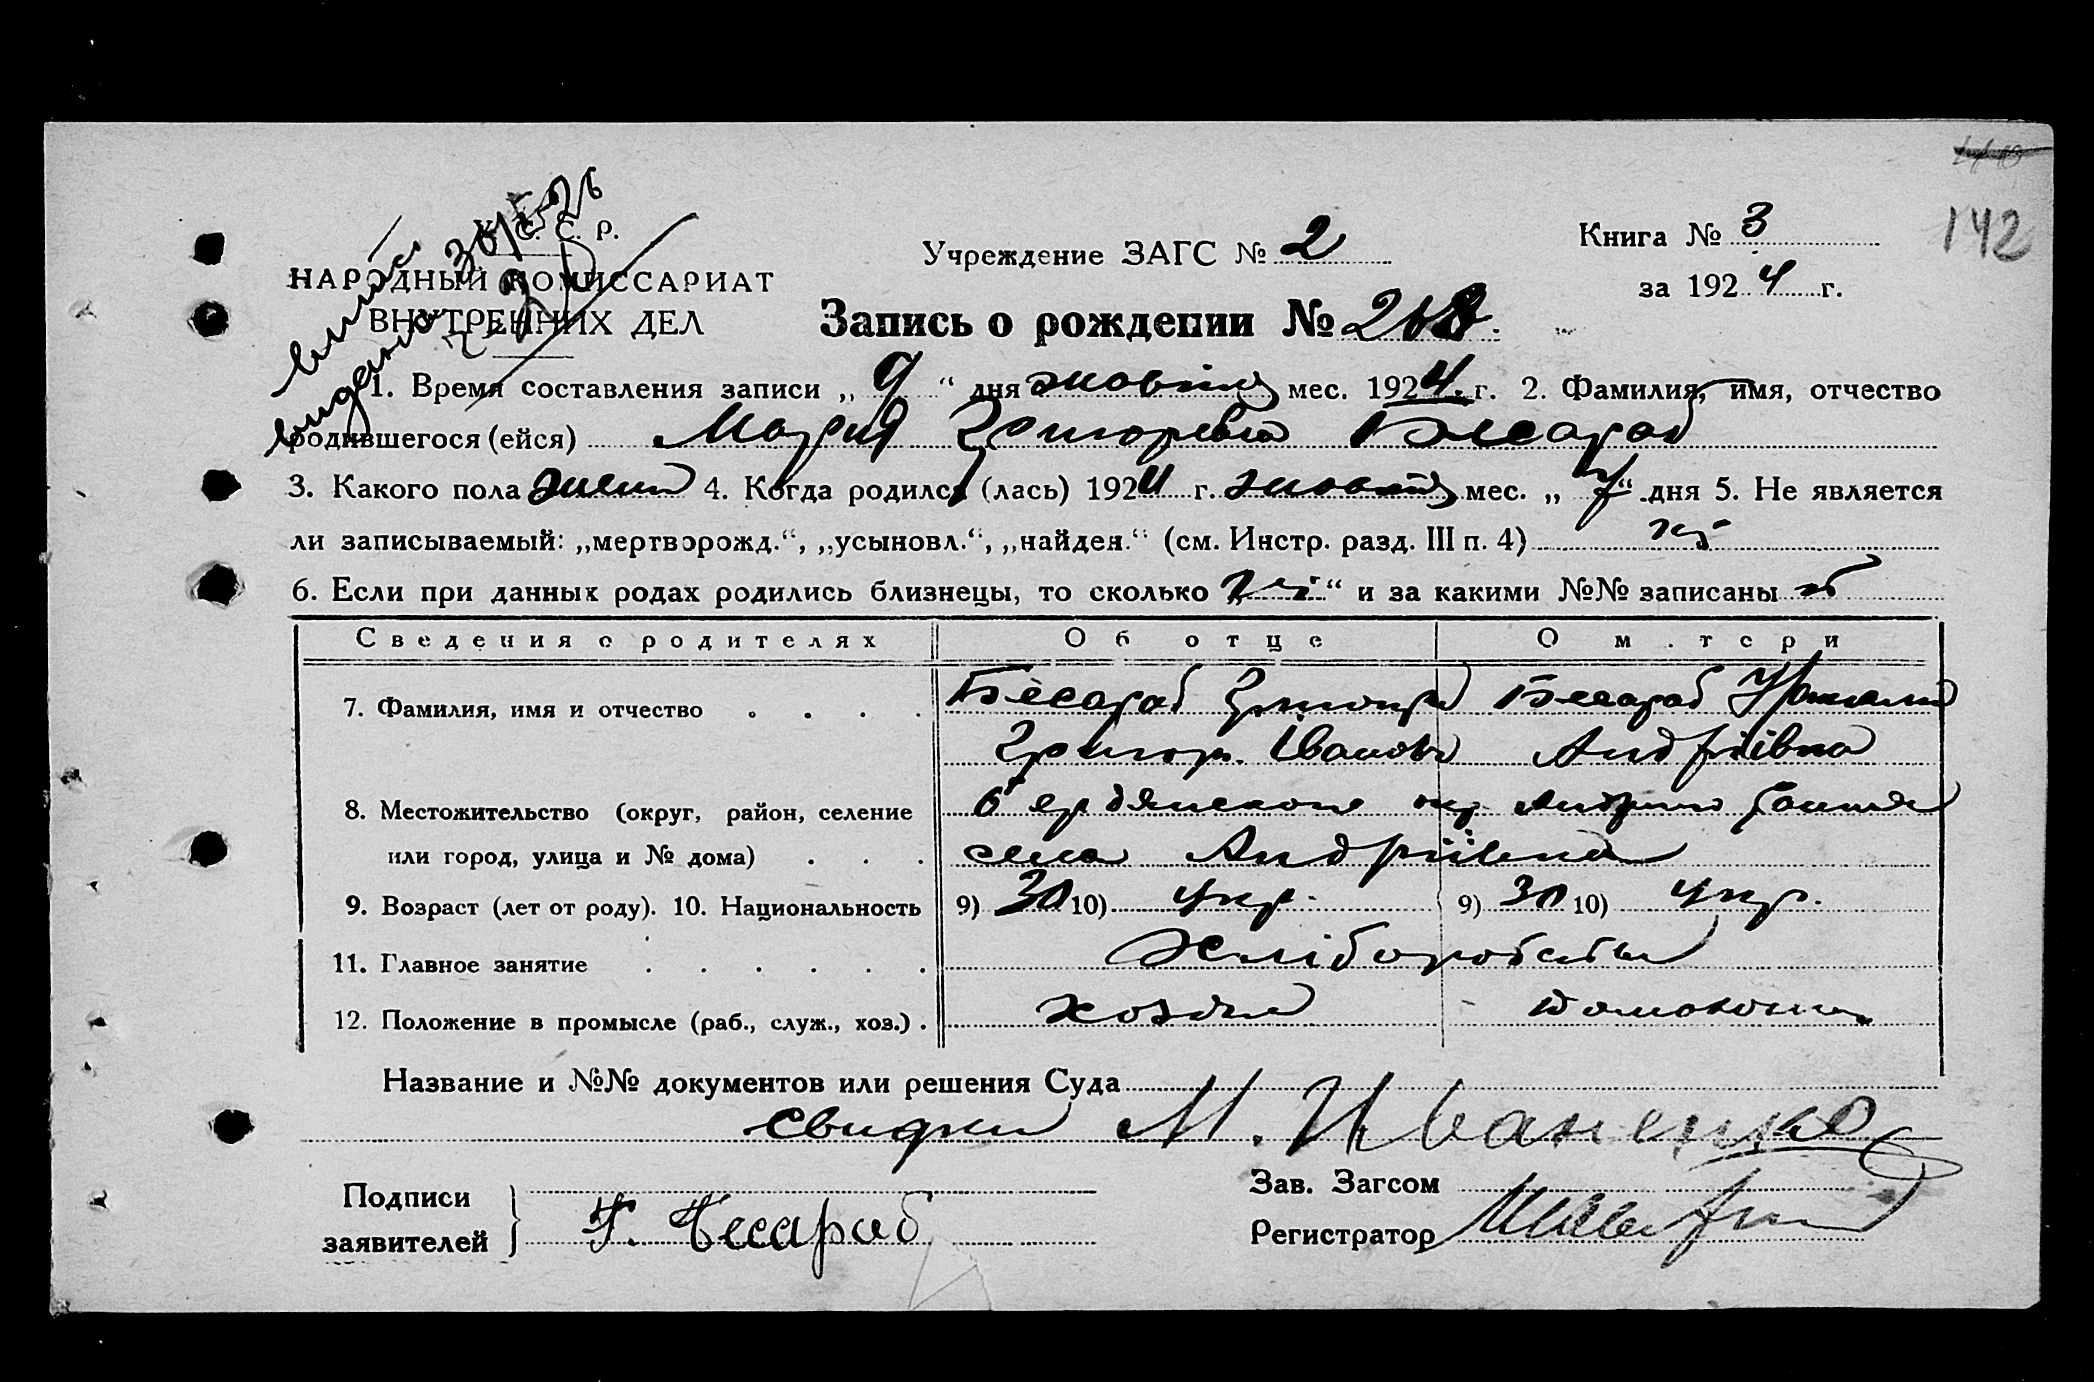 142
У. С. С. Р.
НАРОДНЫЙ КОМИССАРИАТ
ВНУТРЕННИХ ДЕЛ
Учреждение ЗАГС № 2
Книга № 3
за 1924 г.
Запись о рождении №
1. Время составления записи „ 9 “ дня жовтня мес. 1924 г. 2. Фамилия, имя, отчество
родившегося (ейся) Мария Григорьевна Бесараб
3. Какого пола жен 4. Когда родился (лась) 1924 г. жовтня мес. „ 7 “ дня 5. Не является
ли записываемый: „мертворожд.“, „усыновл.“, „найден.“ (см. Инстр. разд. III п. 4)
6. Если при данных родах родились близнецы, то сколько „ “ и за какими №№ записаны
Сведения о родителях Об отце О матери
7. Фамилия, имя и отчество Бесараб Бесараб
Григор. Іванов Андріївна
8. Местожительство (округ, район, селение Бердянскоі окр
или город, улица и № дома) села Андріївка
9. Возраст (лет от роду). 10. Национальность 9) 30 10) укр. 9) 30 10) укр.
11. Главное занятие Хліборобство
12. Положение в промысле (раб., служ., хоз.)
Название и №№ документов или решения Суда
свидки М. Иваненко
Подписи заявителей Г. Бесараб
Зав. Загсом
Регистратор